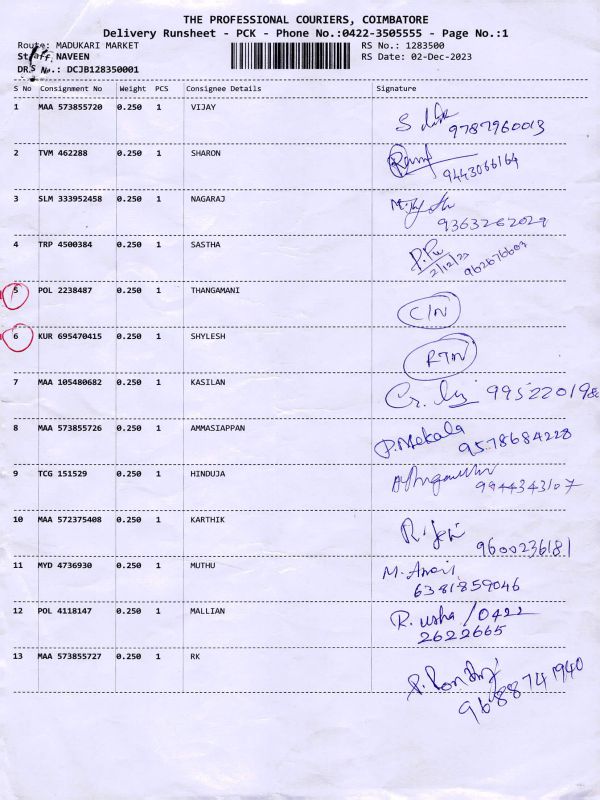 THE PROFESSIONAL COURIERS, COIMBATORE
Delivery Runsheet - PCK - Phone No.:0422-3505555 - Page No.:1
Route: MADUKARI MARKET RS No.: 1283500
Staff: NAVEEN RS Date: 02-Dec-2023
DRS No.: DCJB128350001
S No Consignment No Weight PCS Consignee Details Signature
1 MAA 573855720 0.250 1 VIJAY
9787960013
2 TVM 462288 0.250 1 SHARON
9443066164
3 SLM 333952458 0.250 1 NAGARAJ
9363262029
4 TRP 4500384 0.250 1 SASTHA
2/12/23
5 POL 2238487 0.250 1 THANGAMANI
C/N
6 KUR 695470415 0.250 1 SHYLESH
RTN
7 MAA 105480682 0.250 1 KASILAN
8 MAA 573855726 0.250 1 AMMASIAPPAN
P. Mekala
9578684228
9 TCG 151529 0.250 1 HINDUJA
9944343107
10 MAA 572375408 0.250 1 KARTHIK
9600236181
11 MYD 4736930 0.250 1 MUTHU
6381859046
12 POL 4118147 0.250 1 MALLIAN
R. usha /0422
2622665
13 MAA 573855727 0.250 1 RK
9688741940